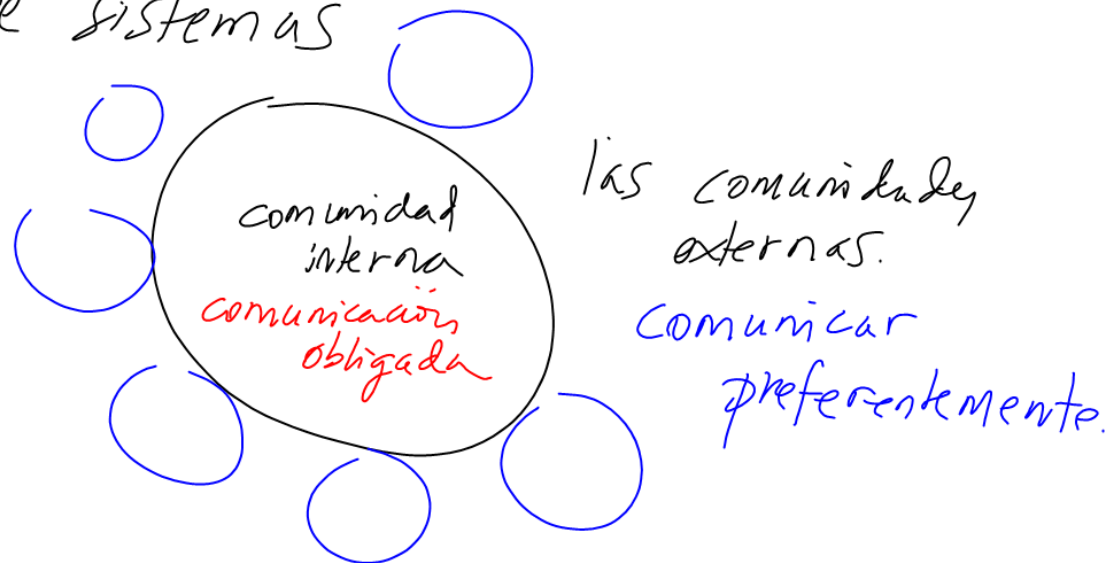 e sistemas
comunidad
interna
comunicación
obligada
las comunidades
externas.
comunicar
preferentemente.